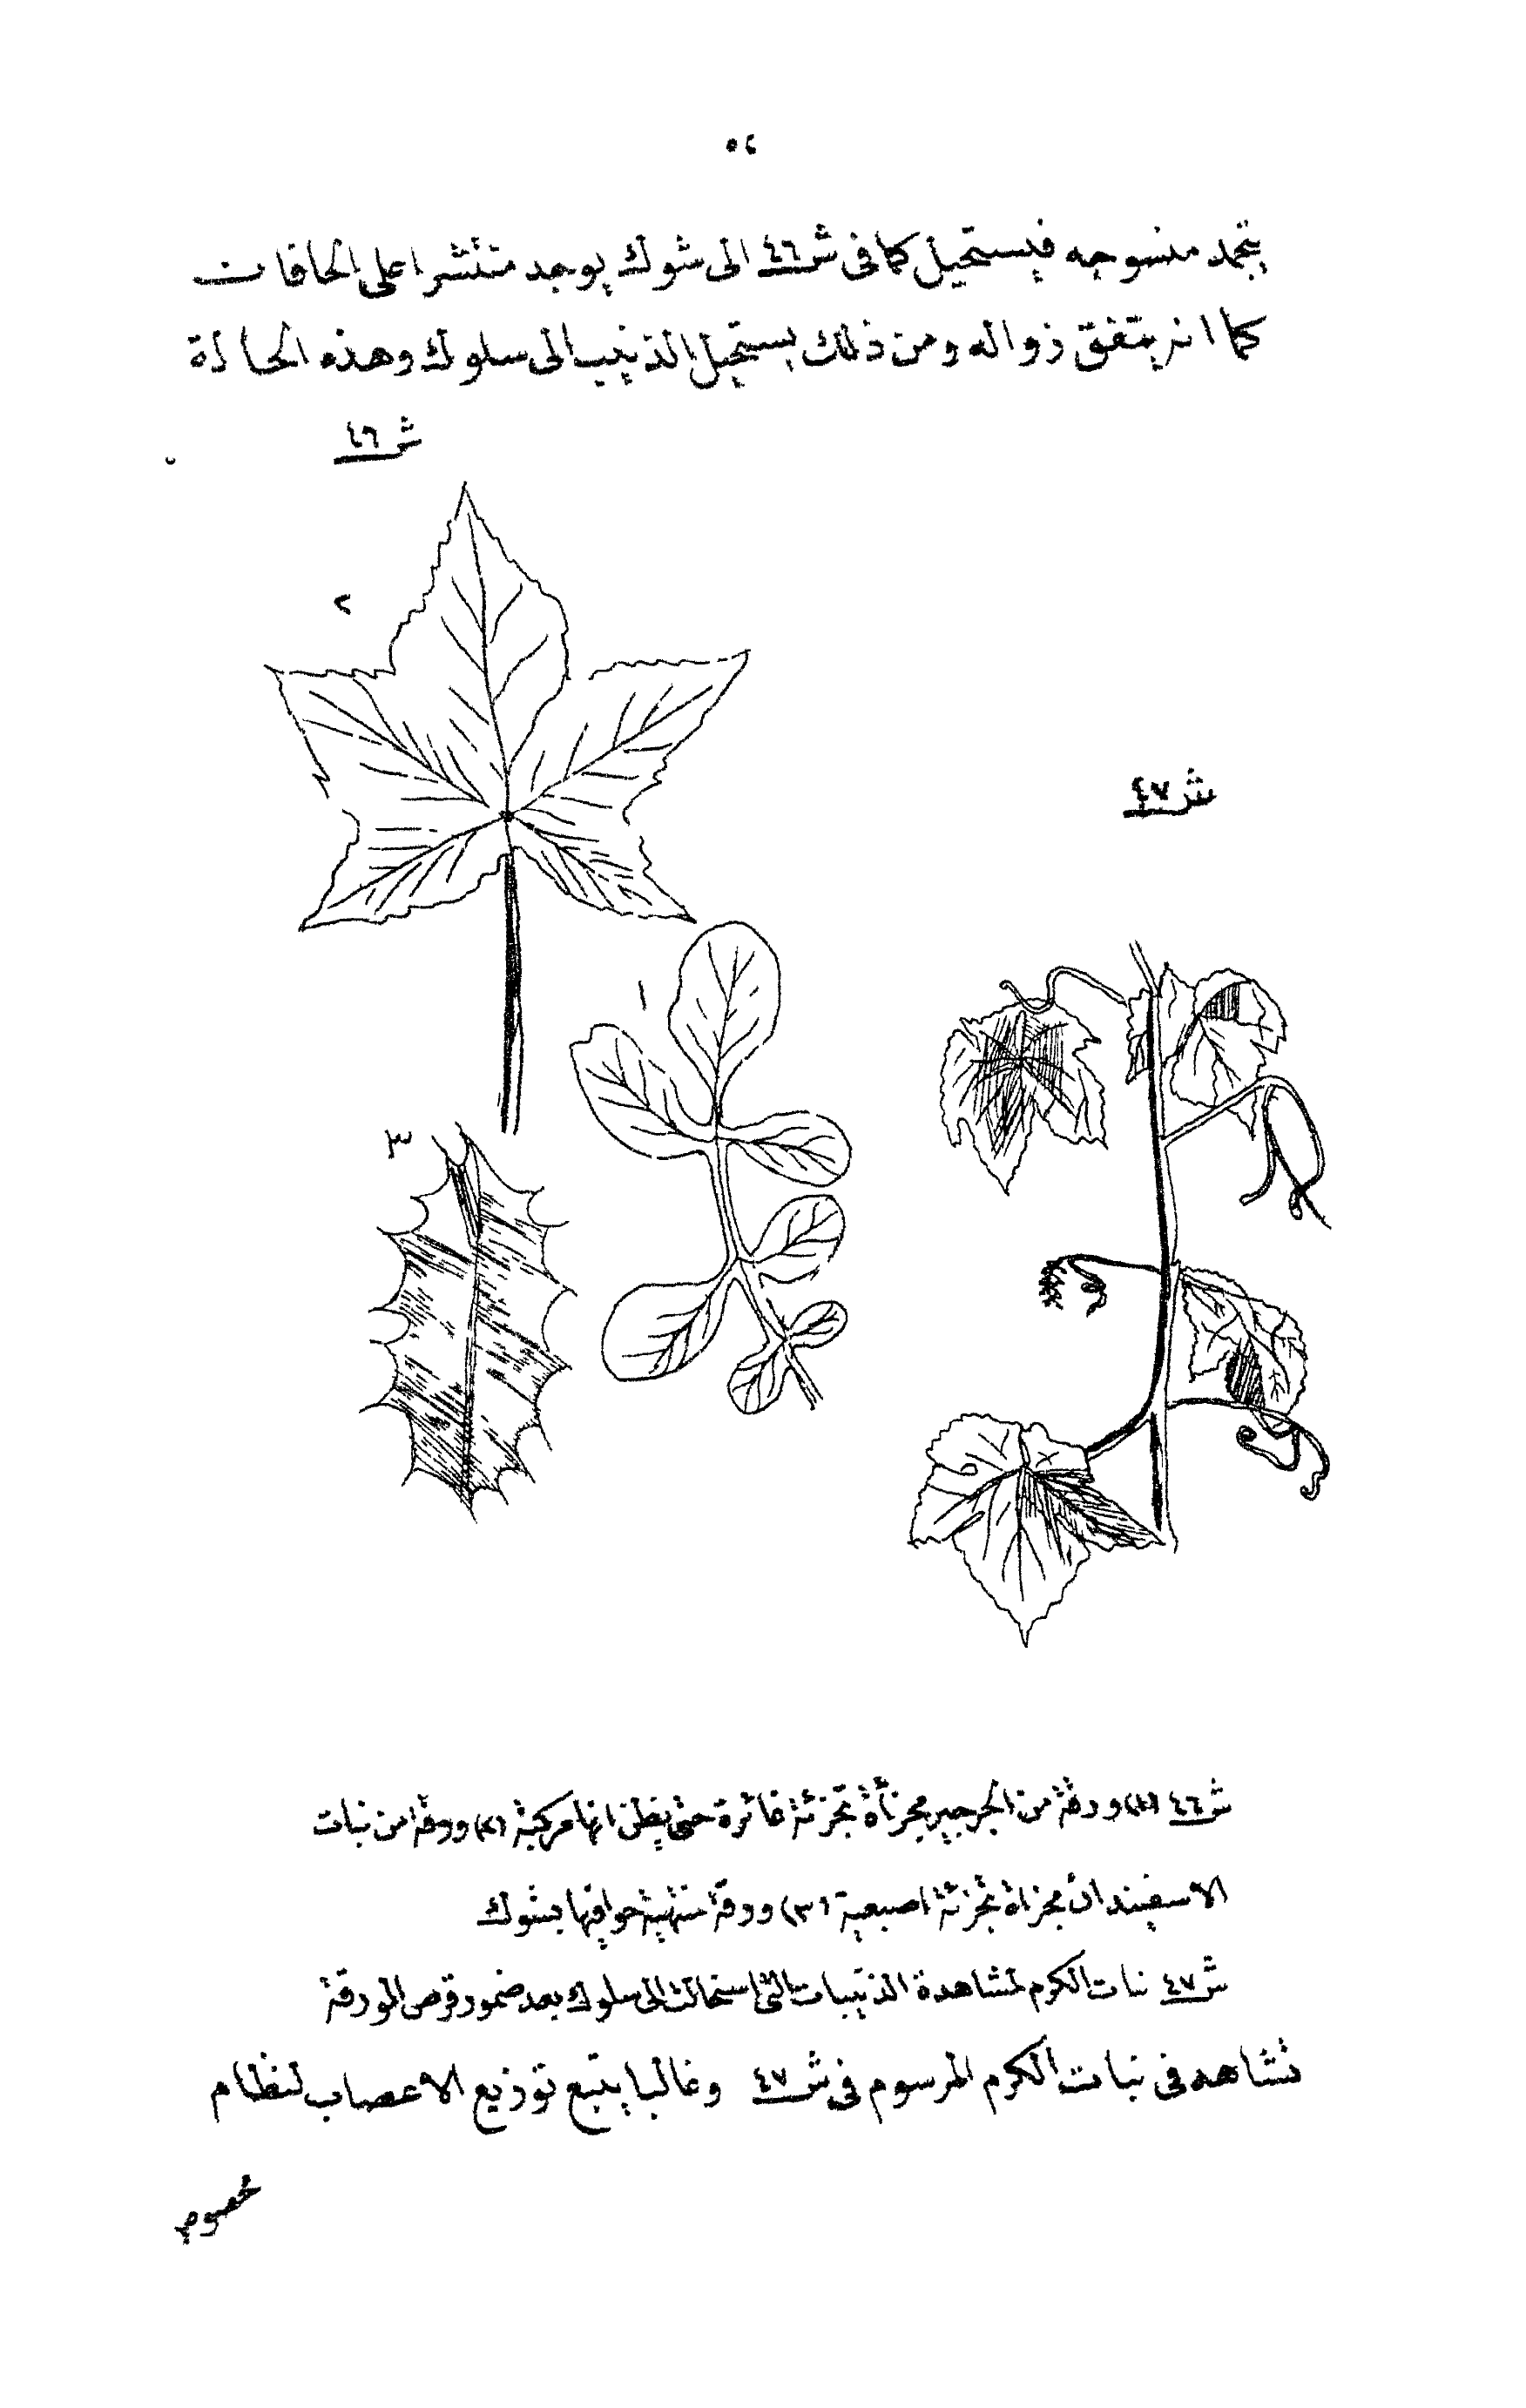 ٥٤
يتجمد منسوجه فيستحيل كما فى ش٤٦ الى شوك يوجد منتشرا على الحافات
كما انه يتفق زواله ومن ذلك يستحيل الذنيب الى سلوك وهذه الحالة
ش٤٦
٢
ش٤٧
١
٣
ش٤٦ (١) ورقة من الجرجير مجزأة تجزئة غائرة حتى يظن انها مركبة (٢) ورقة من نبات
الاسفيندان مجزاة تجزئة اصبعية (٣) ورقة منتهية حوافيها بشوك
ش٤٧ نبات الكرم لمشاهدة الذنيبات التى استحالت الى سلوك بعد ضمور قرص الورقة
تشاهد فى نبات الكرم المرسوم فى ش٤٧ وغالبا يتبع توزيع الاعصاب لنظام